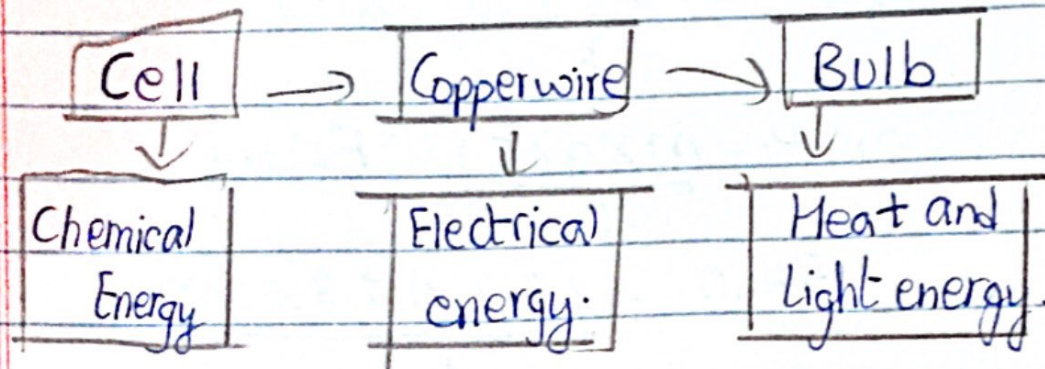 Cell
Copperwire
Bulb
Chemical
Energy
Electrical
energy.
Heat and
Light energy.